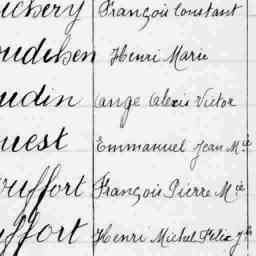 François Constant
Henri Marie
udin Ange Alexis Victor
uest Emmanuel Jean Mie
ouffort François Pierre Mie
uffort Henri Michel Félix Jh